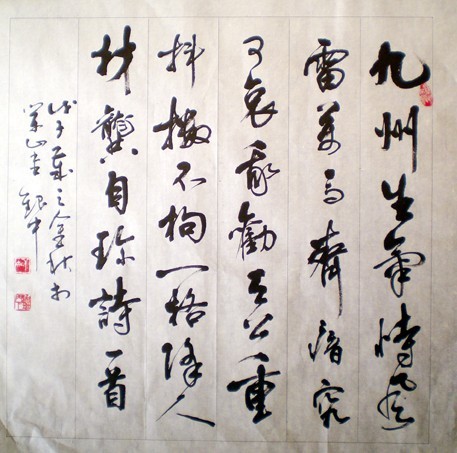 九州生氣恃風
雷萬馬齊瘖究
可哀我勸天公重
抖擻不拘一格降人
材龔自珍詩一首
戊子歲之金秋於